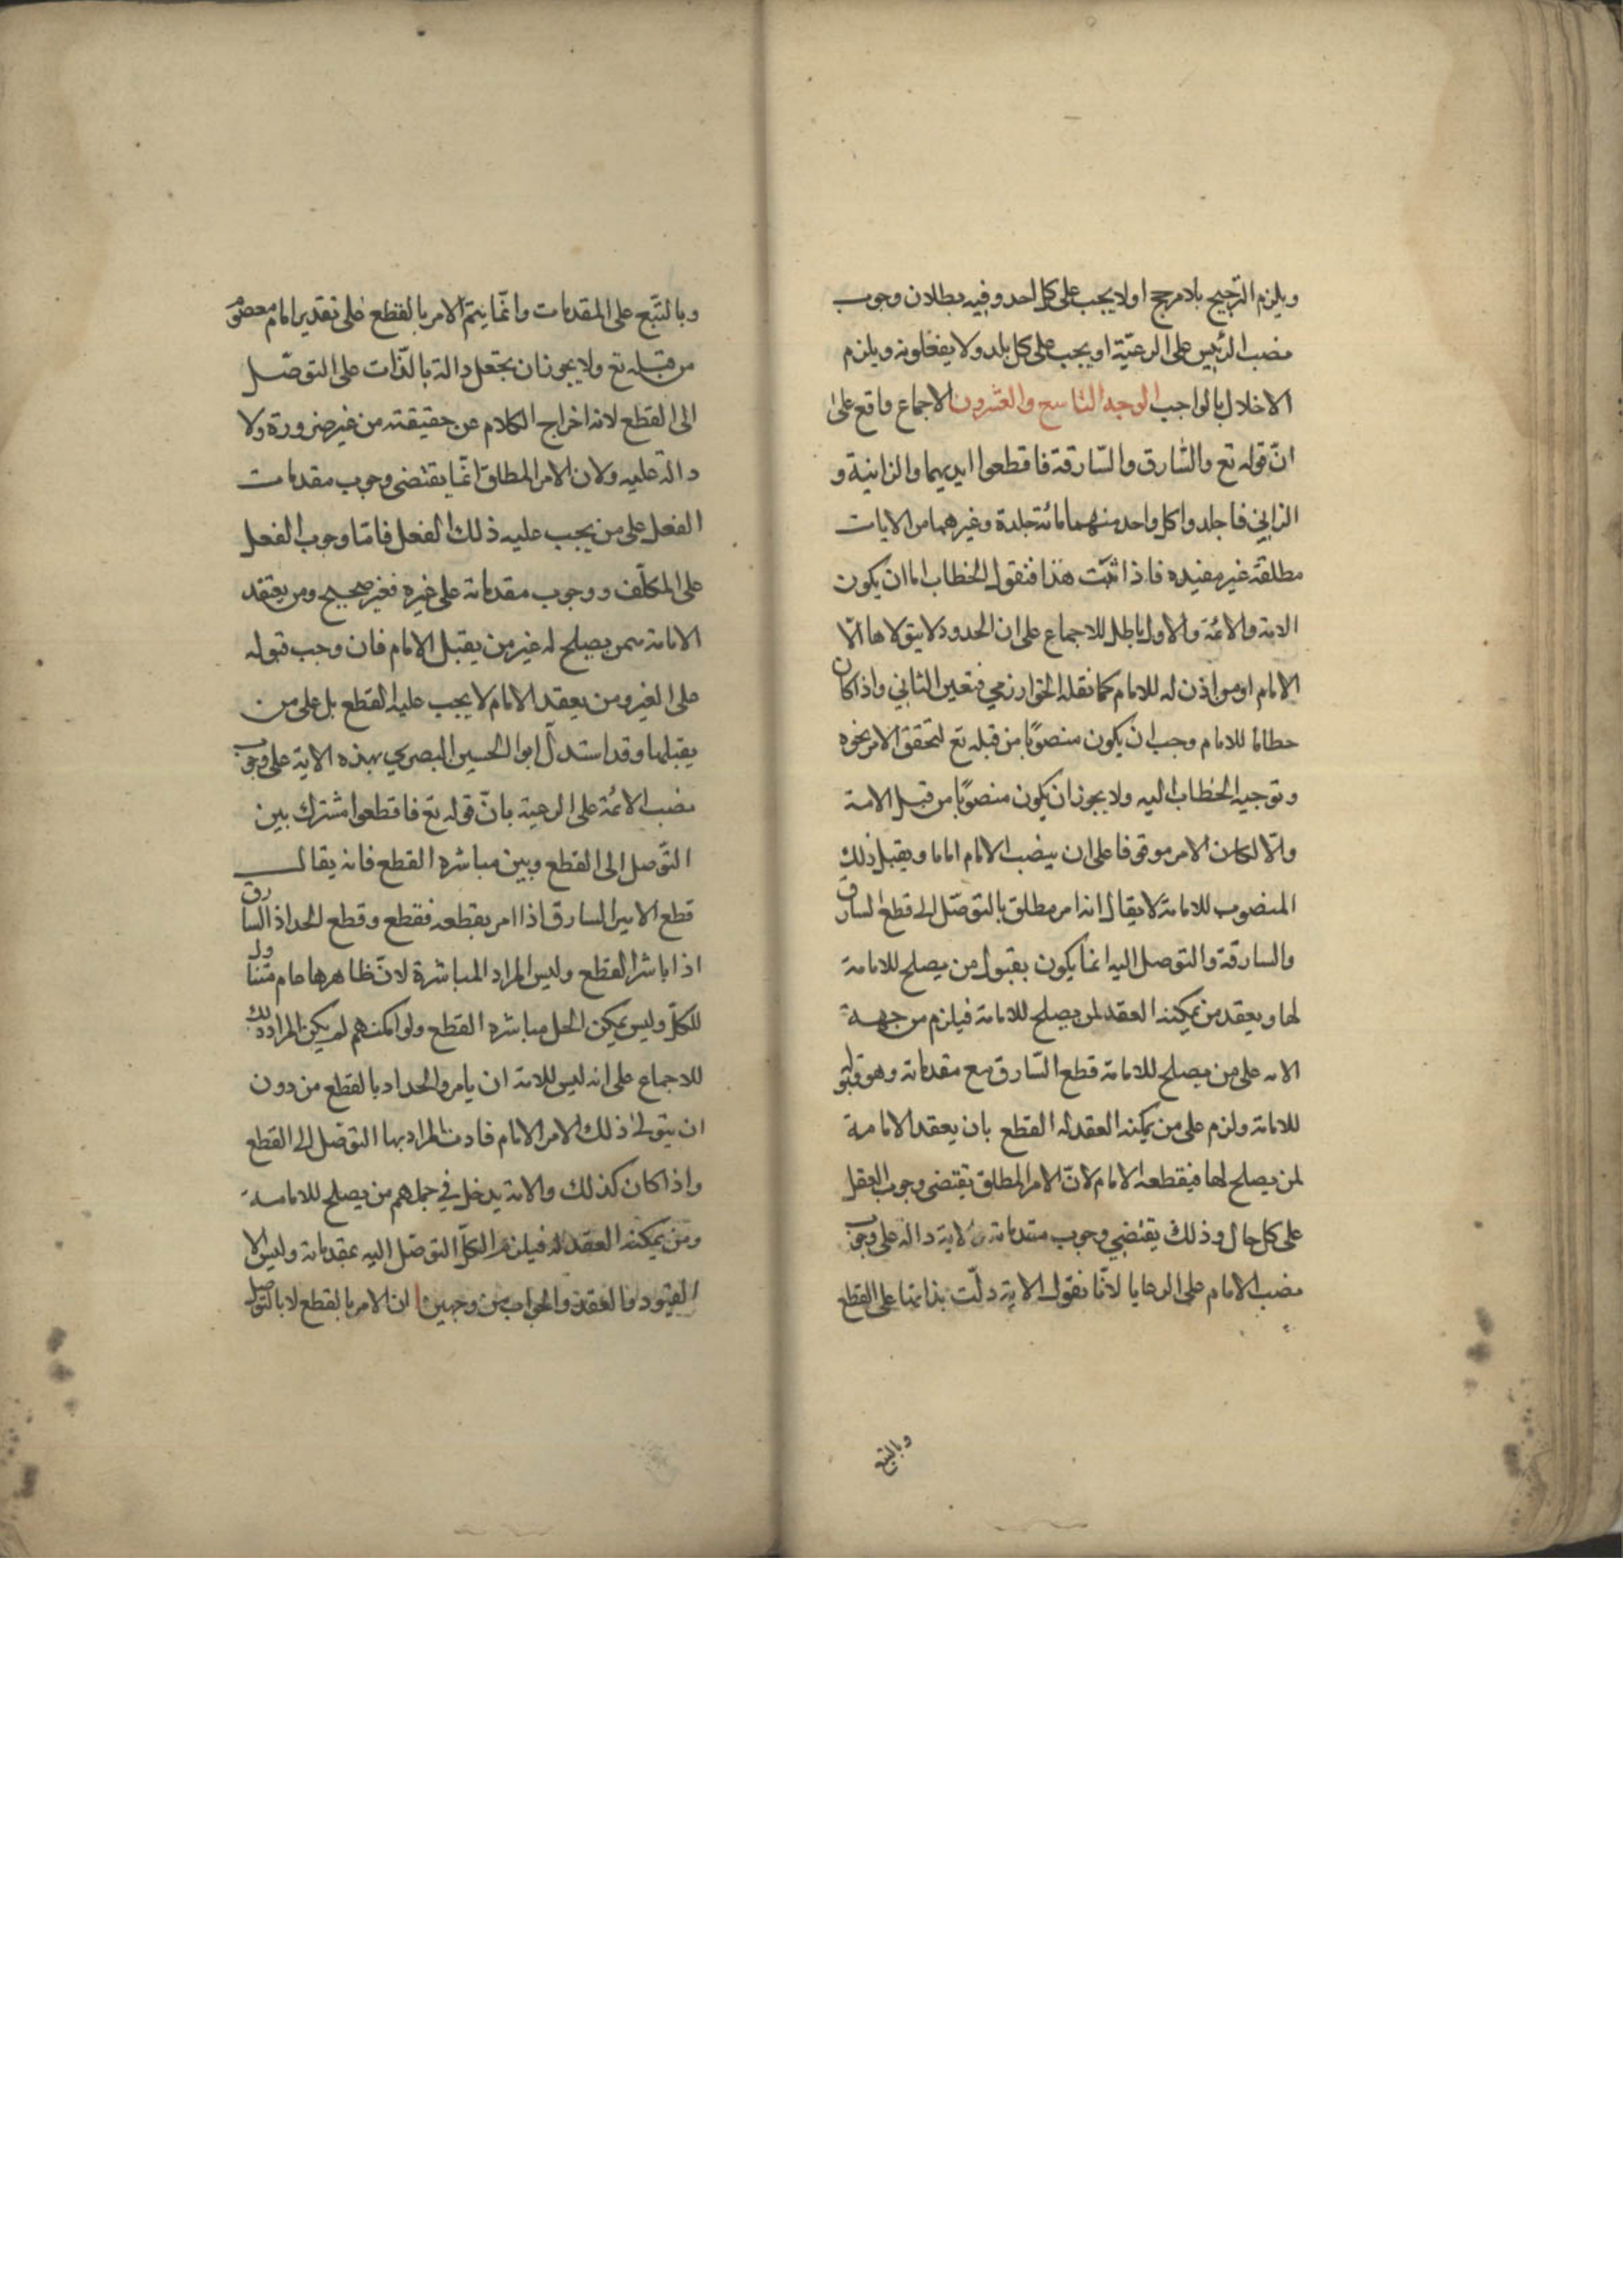 ويلزم الترجيح بلا مرجح او لا يجب على كل احد وفيه بطلان وجوب
نصب الرئيس على الرعيّة او يجب على كل بلد ولا يفعلونه ويلزم
الاخلال بالواجب الوجه التاسع والعشرون الاجماع واقع على
انّ قوله تع والسّارق والسّارقة فاقطعوا ايديهما والزانية و
الزاني فاجلدوا كل واحد منهما مائة جلدة وغيرهما من الايات
مطلقة غير مقيده فاذا ثبّت هذا فنقول الخطاب اما ان يكون
الامة والائمة والاول باطل للاجماع على ان الحدود لا يتولاها الّا
الامام او من اذن له للامام كما نقله الخوارزمي فتعين الثاني واذا كان
خطابا للامام وجب ان يكون منصوبًا من قبله تع لتحقق الامر نحوه
وتوجيه الخطاب اليه ولا يجوز ان يكون منصوبًا من قبل الامة
والّا لكان الامر موقوفا على ان ينصب الامام اماما ويقبل ذلك
المنصوب للامامة لا يقال انه امر مطلق بالتوصّل الى قطع السارق
والسارقة والتوصل اليه انما يكون بقبول من يصلح للامامة
لها ويعقد من يمكنه العقد لمن يصلح للامامة فيلزم من جهة
الامه على من يصلح للامامة قطع السّارق مع مقدماته وهو قبوله
للامامة ولزم على من يمكنه العقد له القطع بان يعقد الامامة
لمن يصلح لها فيقطعه الامام لانّ الامر المطلق يقتضي وجوب الفعل
على كل حال وذلك يقتضي وجوب مقدماته لا ية دالة على وجوب
نصب الامام على الرعايا لانّا نقول الاية دلّت بذاتها على القطع
وبالتبع
وبالتّبع على المقدمات وانّما يتم الامر بالقطع على تقدير امام معصوم
من قبله تع ولا يجوز ان يجعل دالة بالذّات على التوصّل
الى القطع لانه اخراج الكلام عن حقيقته من غير ضرورة ولا
دالة عليه ولان الامر المطلق انّما يقتضي وجوب مقدمات
الفعل على من يجب عليه ذلك الفعل فامّا وجوب الفعل
على المكلّف ووجوب مقدماته على غيره فغير صحيح ومن يعقد
الامامة لمن يصلح له غير من يقبل الامام فان وجب قبوله
على الغير ومن يعقد الامام لا يجب عليه القطع بل على من
يقبلها وقد استدلّ ابو الحسين البصري بهذه الاية على وجوب
نصب الائمة على الرعية بانّ قوله تع فاقطعوا مشترك بين
التّوصل الى القطع وبين مباشره القطع فانه يقال
قطع الامير السارق اذا امر بقطعه فقطع وقطع الحداد السارق
اذا باشر القطع وليس المراد المباشرة لانّ ظاهرها عام متناول
للكلّ وليس يمكن الكل مباشره القطع ولو امكنهم لم يكن المراد ذلك
للاجماع على انه ليس للامة ان يامروا الحداد بالقطع من دون
ان يتولى ذلك الامر الامام فاذن المراد بها التوصّل الى القطع
واذا كان كذلك والامة يدخل في جملهم من يصلح للامامة
ومن يمكنه العقد له فيلزم الكلّ التوصّل اليه بمقدماته وليس الا
القبول والعقد والجواب من وجهين ا ان الامر بالقطع لا بالتوصل